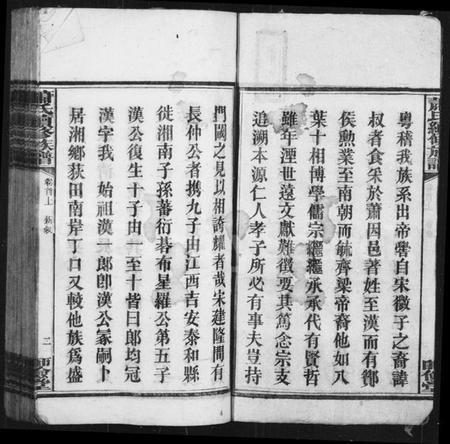 蕭氏續修族譜
粵稽我族系出帝嚳自宋微子之裔諱
叔者食采於蕭因邑著姓至漢而有酇
侯勲業至南朝而毓齊梁帝裔他如八
葉十相博學儒宗繼繼承承代有賢哲
雖年湮世遠文獻難徵要其篤念宗支
追溯本源仁人孝子所必有事夫豈持
門閥之見以相誇耀者哉宋建隆間有
長仲公者携九子由江西吉安泰和縣
徙湘南子孫蕃衍碁布星羅公第五子
漢公復生十子由一至十皆曰郎均冠
漢字我 始祖漢一郎卽漢公冢嗣卜
居湘鄉荻田南岸丁口又較他族爲盛
蕭氏續修族譜
卷首上
二